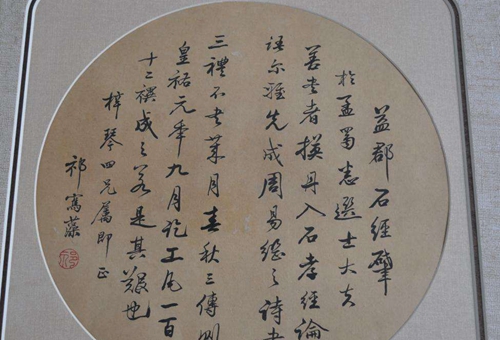 益郡石經肇
於孟蜀悉選士大夫
善書者模丹入石孝經論
語尔雅先成周易繼之詩書
三禮不書某月春秋三傳則
皇祐元年九月訖工凡一百
十二禩成之若是其艱也
梓琴四兄属即正
祁寯藻